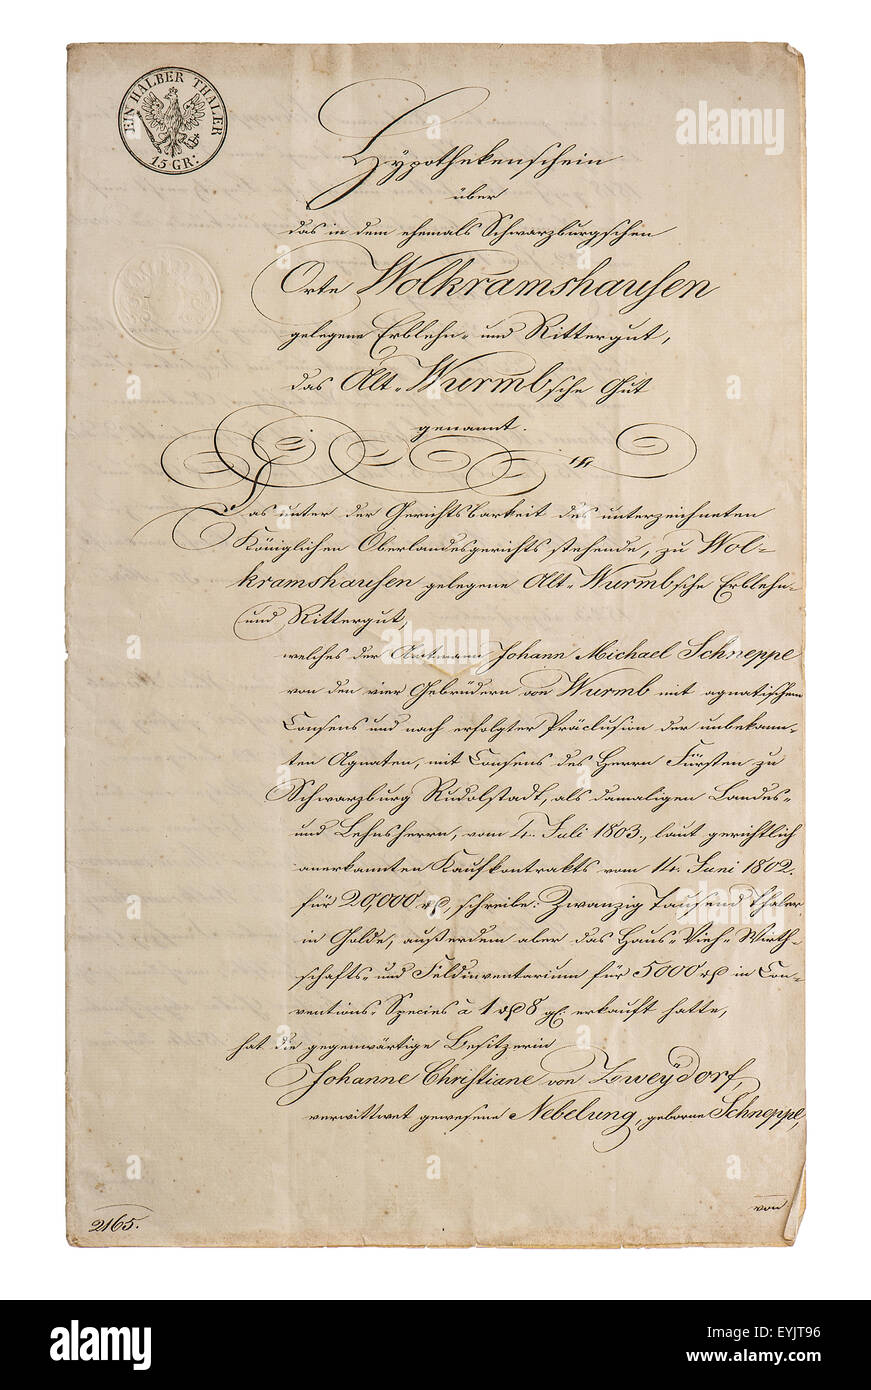 EIN HALBER THALER
15 GR:
Hypothekenschein
über
das in dem ehemals Schwarzburgschen
Orte Wolkramshausen
gelegene Erblehn- und Rittergut,
das Alt-Wurmbsche Gut
genannt.
Das unter der Gerichtsbarkeit des unterzeichneten
Königlichen Oberlandesgerichts stehende, zu Wol-
kramshausen gelegene Alt-Wurmbsche Erblehn-
und Rittergut,
welches der Amtmann Johann Michael Schneppe
von den vier Gebrüdern von Wurmb mit agnatischem
Consens und nach erfolgter Präclusion der unbekann-
ten Agnaten, mit Consens des Herrn Fürsten zu
Schwarzburg Rudolstadt, als damaligen Landes-
und Lehnsherrn, vom 4. Juli 1803., laut gerichtlich
anerkannten Kaufkontrakts vom 14. Juni 1802.
für 20,000 rß, schreibe: Zwanzig Tausend Thaler
in Golde, außerdem aber das Haus- Vieh- Wirth-
schafts- und Feldinventarium für 5000 rß in Con-
ventions-Species à 1 rß 8 gl. erkauft hatte,
hat die gegenwärtige Besitzerin
Johanne Christiane von Zweydorf,
verwittwet gewesene Nebelung, geborne Schneppe,
von
2165.
alamy
alamy
alamy stock photo
EYJT96
www.alamy.com